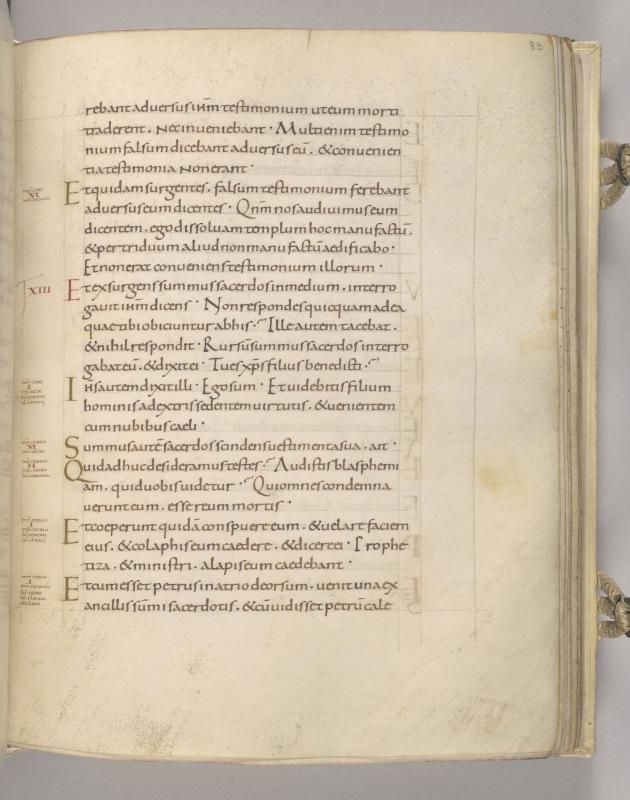 83
rebant adversus ihm testimonium ut eum morti
traderent. Nec inveniebant. Multi enim testimo
nium falsum dicebant adversus eū. & convenien
tia testimonia non erant.
Et quidam surgentes. falsum testimonium ferebant
adversus eum dicentes. Qnm nos audivimus eum
dicentem. ego dissolvam templum hoc manu factū.
& per triduum aliud non manu factū aedificabo.
Et non erat conveniens testimonium illorum.
XIII Et exsurgens summus sacerdos in medium. interro
gavit ihm dicens. Non respondes quicquam ad ea
quae tibi obiciuntur ab his. Ille autem tacebat.
& nihil respondit. Rursū summus sacerdos interro
gabat eū. & dixit ei. Tu es xps filius benedicti.
Ihs autem dixit illi. Ego sum. Et videbitis filium
hominis a dextris sedentem virtutis. & venientem
cum nubibus caeli.
Summus autē sacerdos scindens vestimenta sua. ait.
Quid adhuc desideramus testes. Audistis blasphemi
am. quid vobis videtur. Qui omnes condemna
verunt eum. esse reum mortis.
Et coeperunt quidā conspuere eum. & velare faciem
eius. & colaphis eum caedere. & dicere ei. Prophe
tiza. & ministri. alapis eum caedebant.
Et cum esset petrus in atrio deorsum. venit una ex
ancillis sūmi sacerdotis. & cū vidisset petrū cale